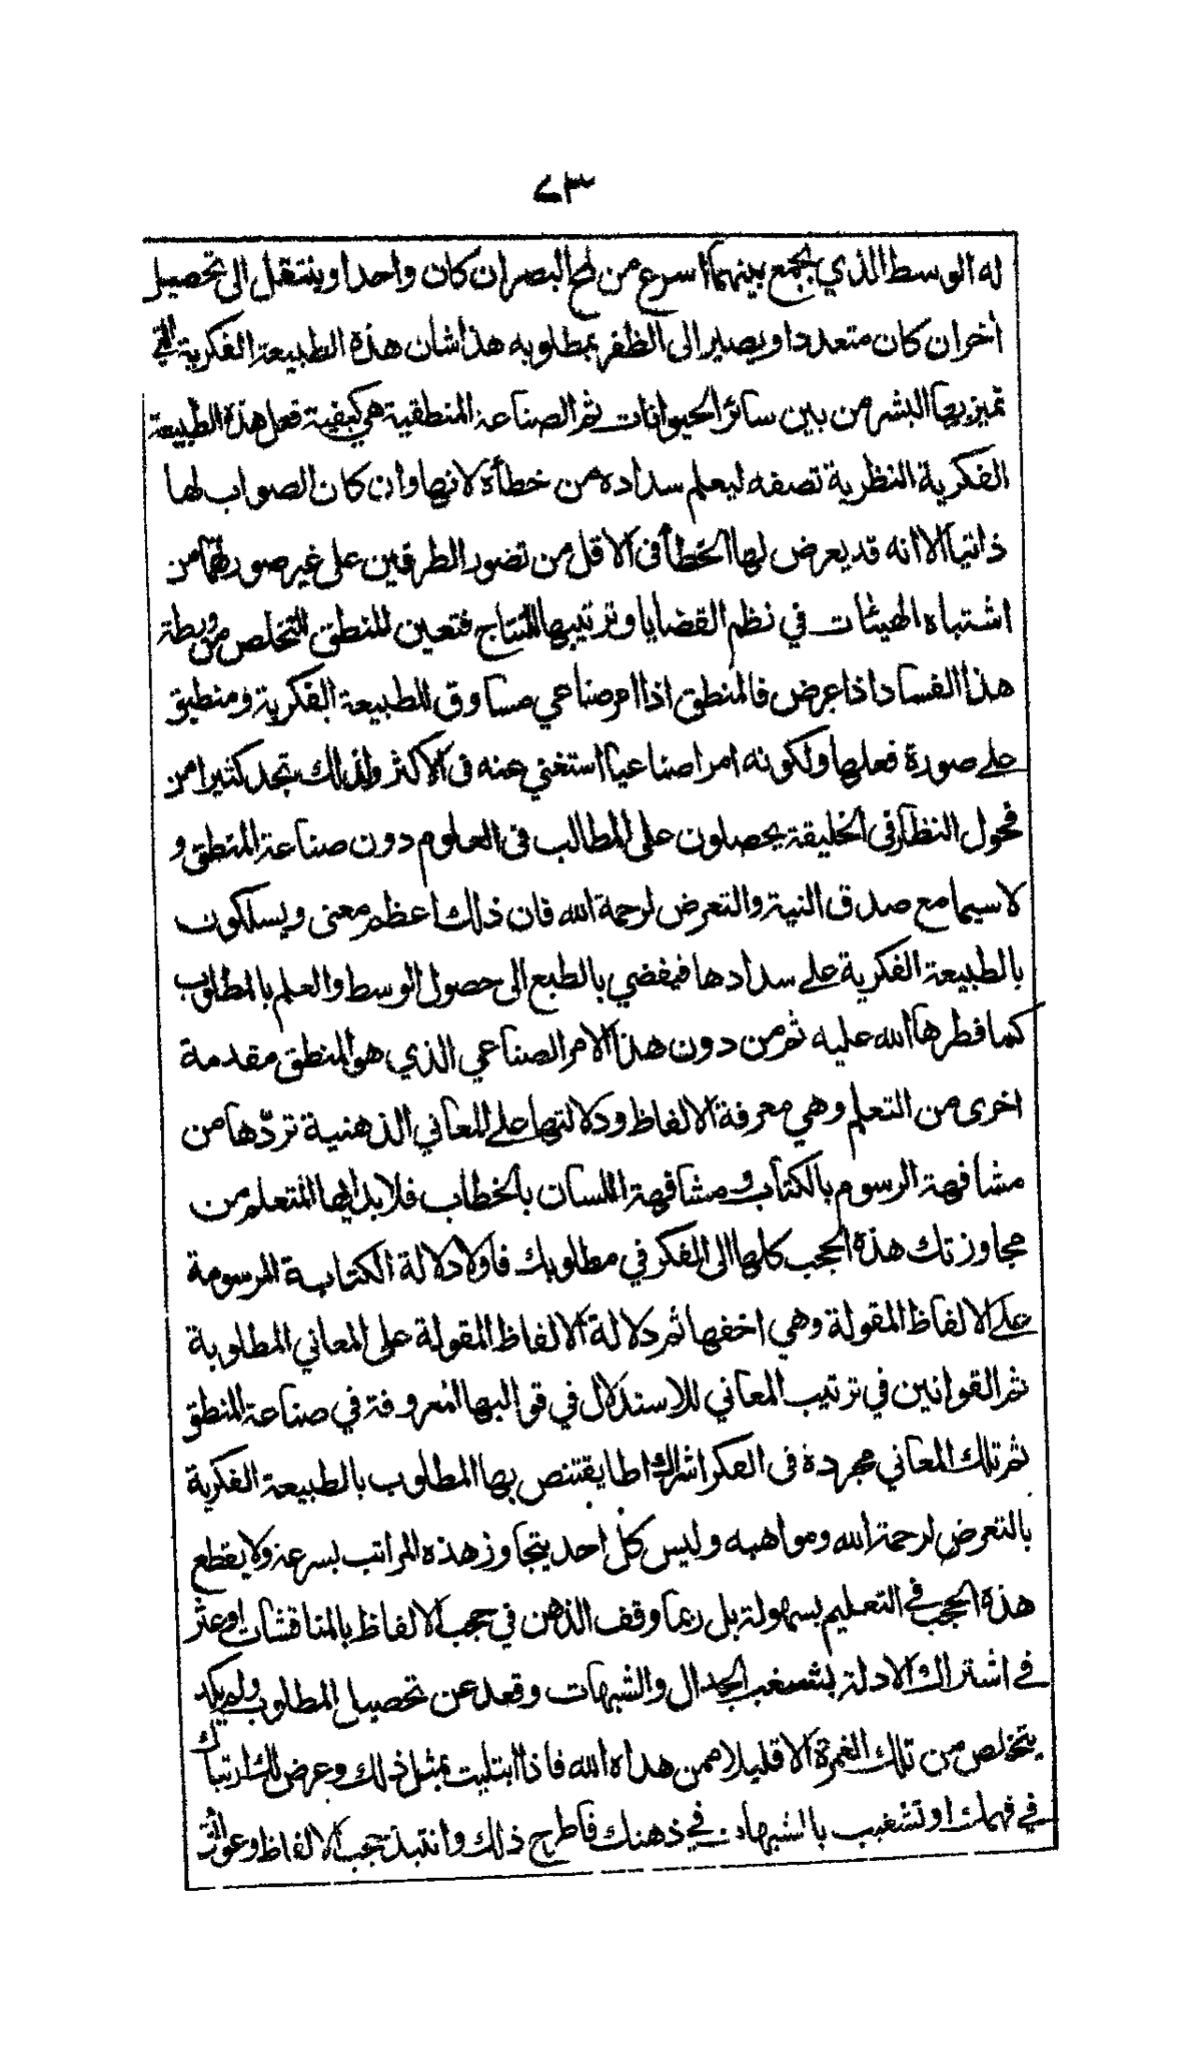 ٧٣
له الوسط الذي يجمع بينهما اسرع من لمح البصر ان كان واحدا وينتقل الى تحصيل
أخر ان كان متعددا ويصير الى الظفر بمطلوبه هذا شأن هذه الطبيعة الفكرية التي
تميز بها البشر من بين سائر الحيوانات ثم الصناعة المنطقية هي كيفية فعل هذه الطبيعة
الفكرية النظرية تصفه ليعلم سداده من خطأه لانها وان كان الصواب لها
ذاتيا الا انه قد يعرض لها الخطأ فى الاقل من تصور الطرفين على غير صورتهما من
اشتباه الهيئات في نظم القضايا وترتيبها للنتاج فتعين المنطق للتخلص من ورطة
هذا الفساد اذا عرض فالمنطق اذا امر صناعي مساوق للطبيعة الفكرية ومنطبق
على صورة فعلها ولكونه امرا صناعيا استغني عنه فى الاكثر ولذلك تجد كثيرا من
فحول النظار فى الخليقة يحصلون على المطالب فى العلوم دون صناعة المنطق و
لا سيما مع صدق النية والتعرض لرحمة الله فان ذلك اعظم معنى ويسلكون
بالطبيعة الفكرية على سدادها فيفضي بالطبع الى حصول الوسط والعلم بالمطلوب
كما فطرها الله عليه ثم من دون هذا الامر الصناعي الذي هو المنطق مقدمة
اخرى من التعلم وهي معرفة الالفاظ ودلالتها على المعاني الذهنية تردّها من
مشافهة الرسوم بالكتاب ومشافهة اللسان بالخطاب فلا بد ايها المتعلم من
مجاوزتك هذه الحجب كلها الى الفكر في مطلوبك فاولا دلالة الكتابة المرسومة
على الالفاظ المقولة وهي اخفها ثم دلالة الالفاظ المقولة على المعاني المطلوبة
ثم القوانين في ترتيب المعاني للاستدلال في قوالبها المعروفة في صناعة المنطق
ثم تلك المعاني مجردة فى الفكر اشراك اطا يقتنص بها المطلوب بالطبيعة الفكرية
بالتعرض لرحمة الله ومواهبه وليس كل احد يتجاوز هذه المراتب بسرعة ولا يقطع
هذه الحجب في التعليم بسهولة بل ربما وقف الذهن في حجب الالفاظ بالمناقشات او عثر
في اشتراك الادلة بشغب الجدال والشبهات وقعد عن تحصيل المطلوب ولم يكد
يتخلص من تلك الغمرة الا قليلا ممن هداه الله فاذا ابتليت بمثل ذلك وعرض لك ارتباك
في فهمك او تشغيب بالشبهات في ذهنك فاطرح ذلك وانتبذ حجب الالفاظ وعوائق